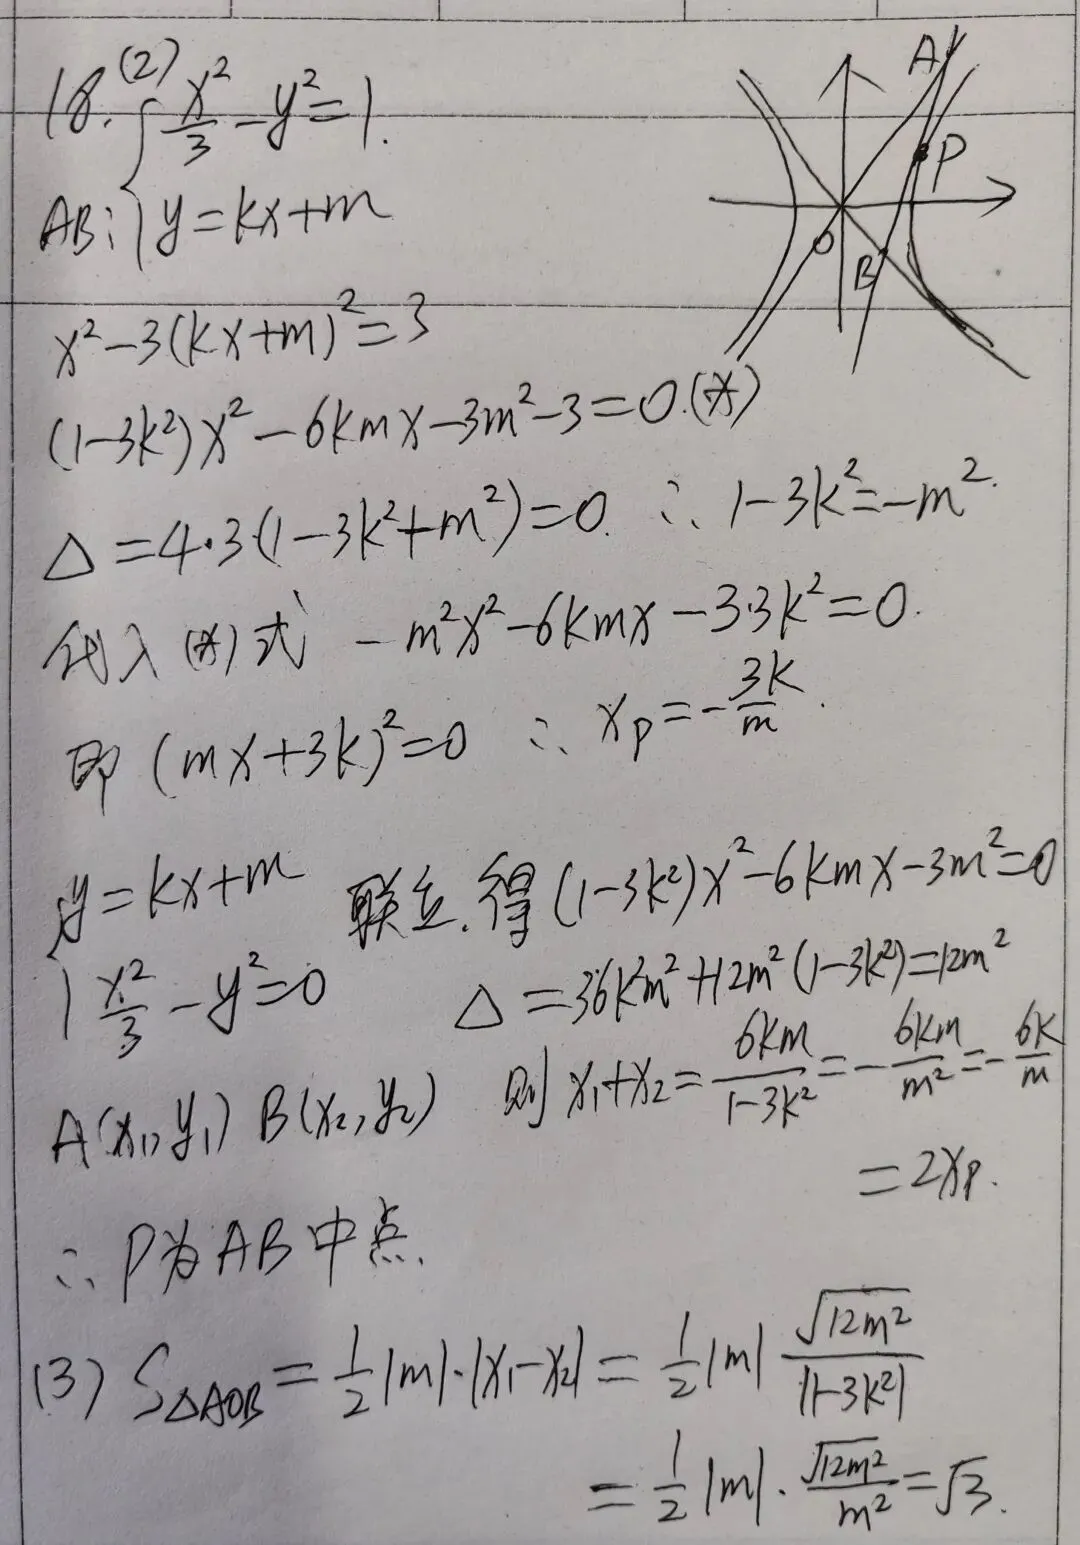 18.(2) { x²/3 - y² = 1.
AB: y = kx + m
A
P
O
B
x² - 3(kx + m)² = 3
(1 - 3k²)x² - 6kmx - 3m² - 3 = 0. (*)
Δ = 4·3(1 - 3k² + m²) = 0. ∴ 1 - 3k² = -m².
代入(*)式 -m²x² - 6kmx - 3·3k² = 0.
即 (mx + 3k)² = 0 ∴ xₚ = -3k/m.
{ y = kx + m 联立.得 (1 - 3k²)x² - 6kmx - 3m² = 0
x²/3 - y² = 0 Δ = 36k²m² + 12m²(1 - 3k²) = 12m²
A(x₁, y₁) B(x₂, y₂) 则 x₁ + x₂ = 6km/(1 - 3k²) = -6km/m² = -6k/m
= 2xₚ.
∴ P为AB中点.
(3) S△AOB = 1/2|m|·|x₁ - x₂| = 1/2|m| √(12m²)/|1 - 3k²|
= 1/2|m|·√(12m²)/m² = √3.